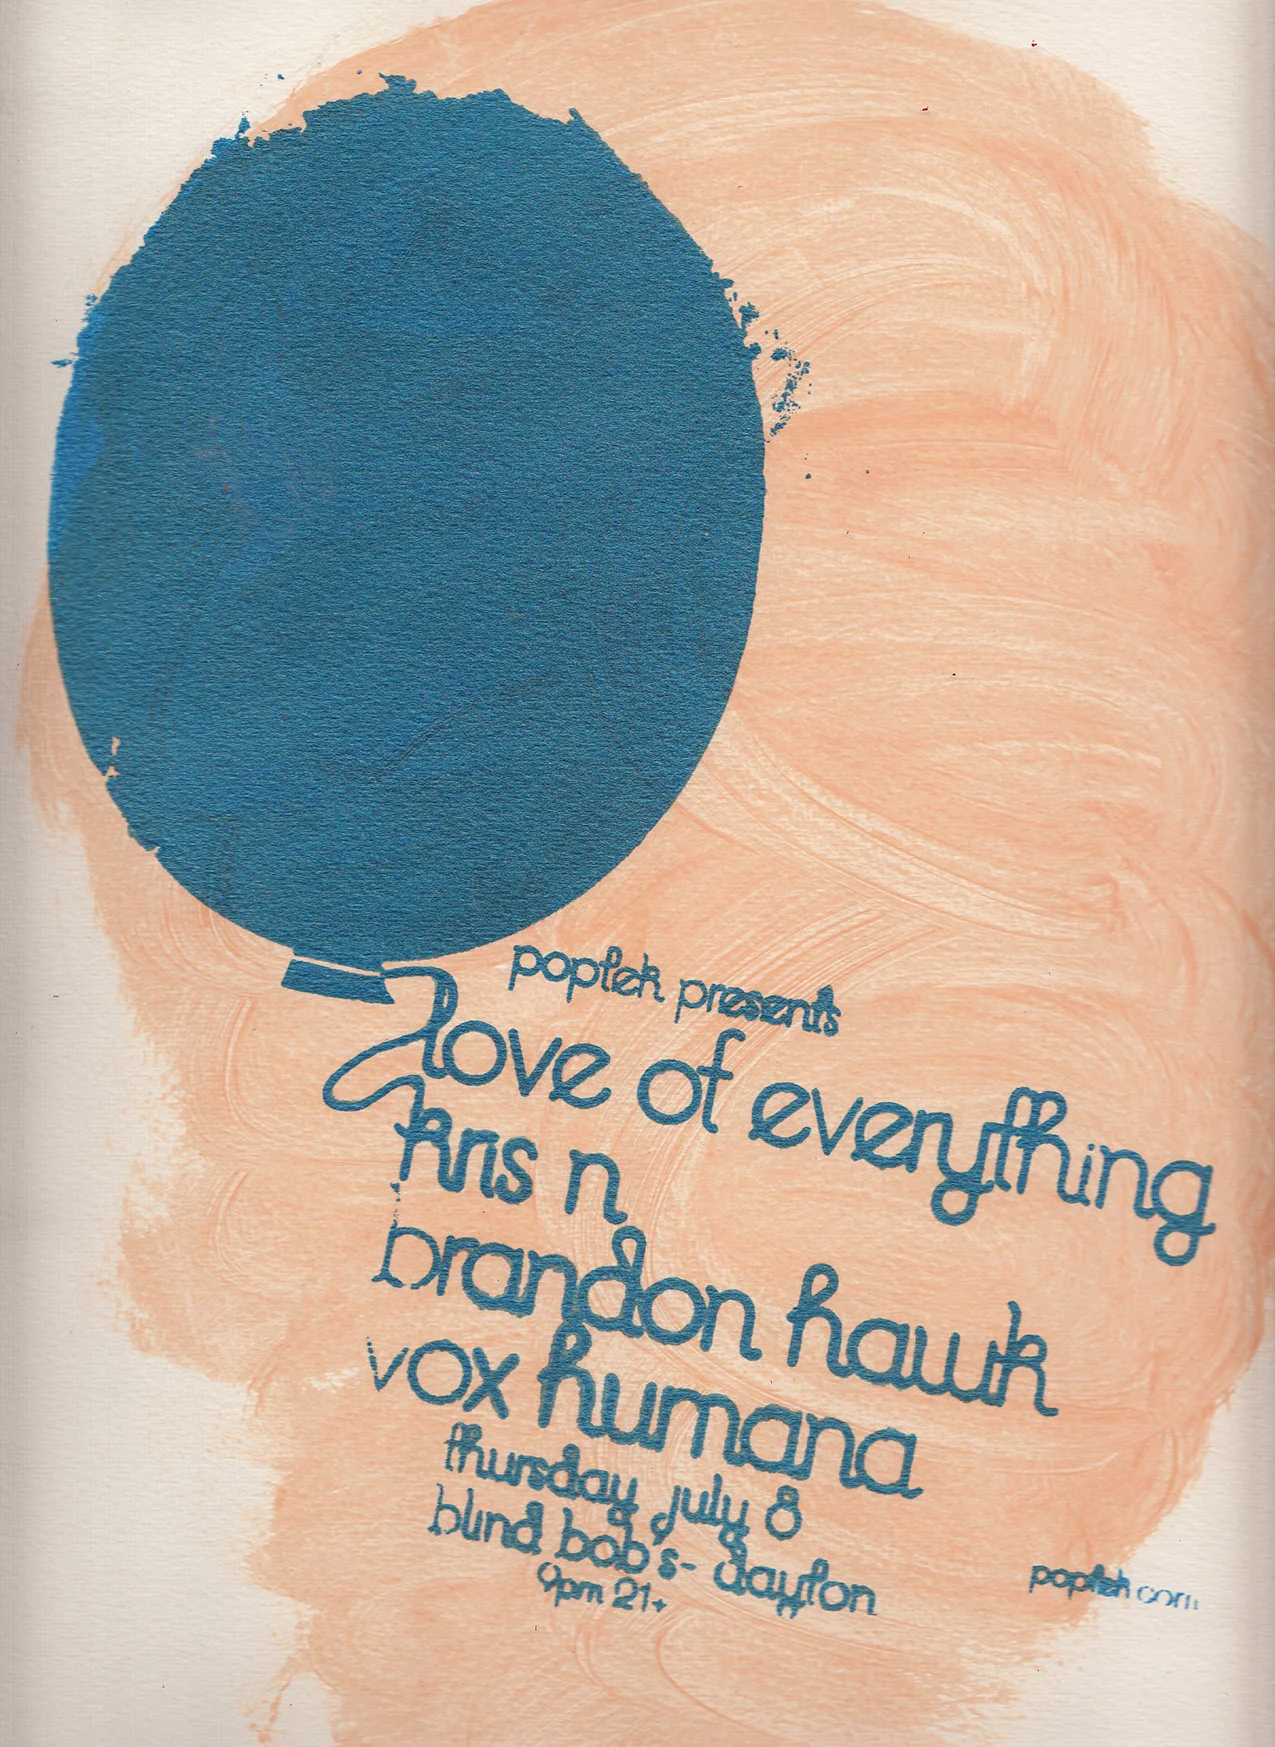 poptek presents
love of everything
kris n
brandon hawk
vox humana
thursday july 8
blind bob's- dayton
9pm 21+
poptek com